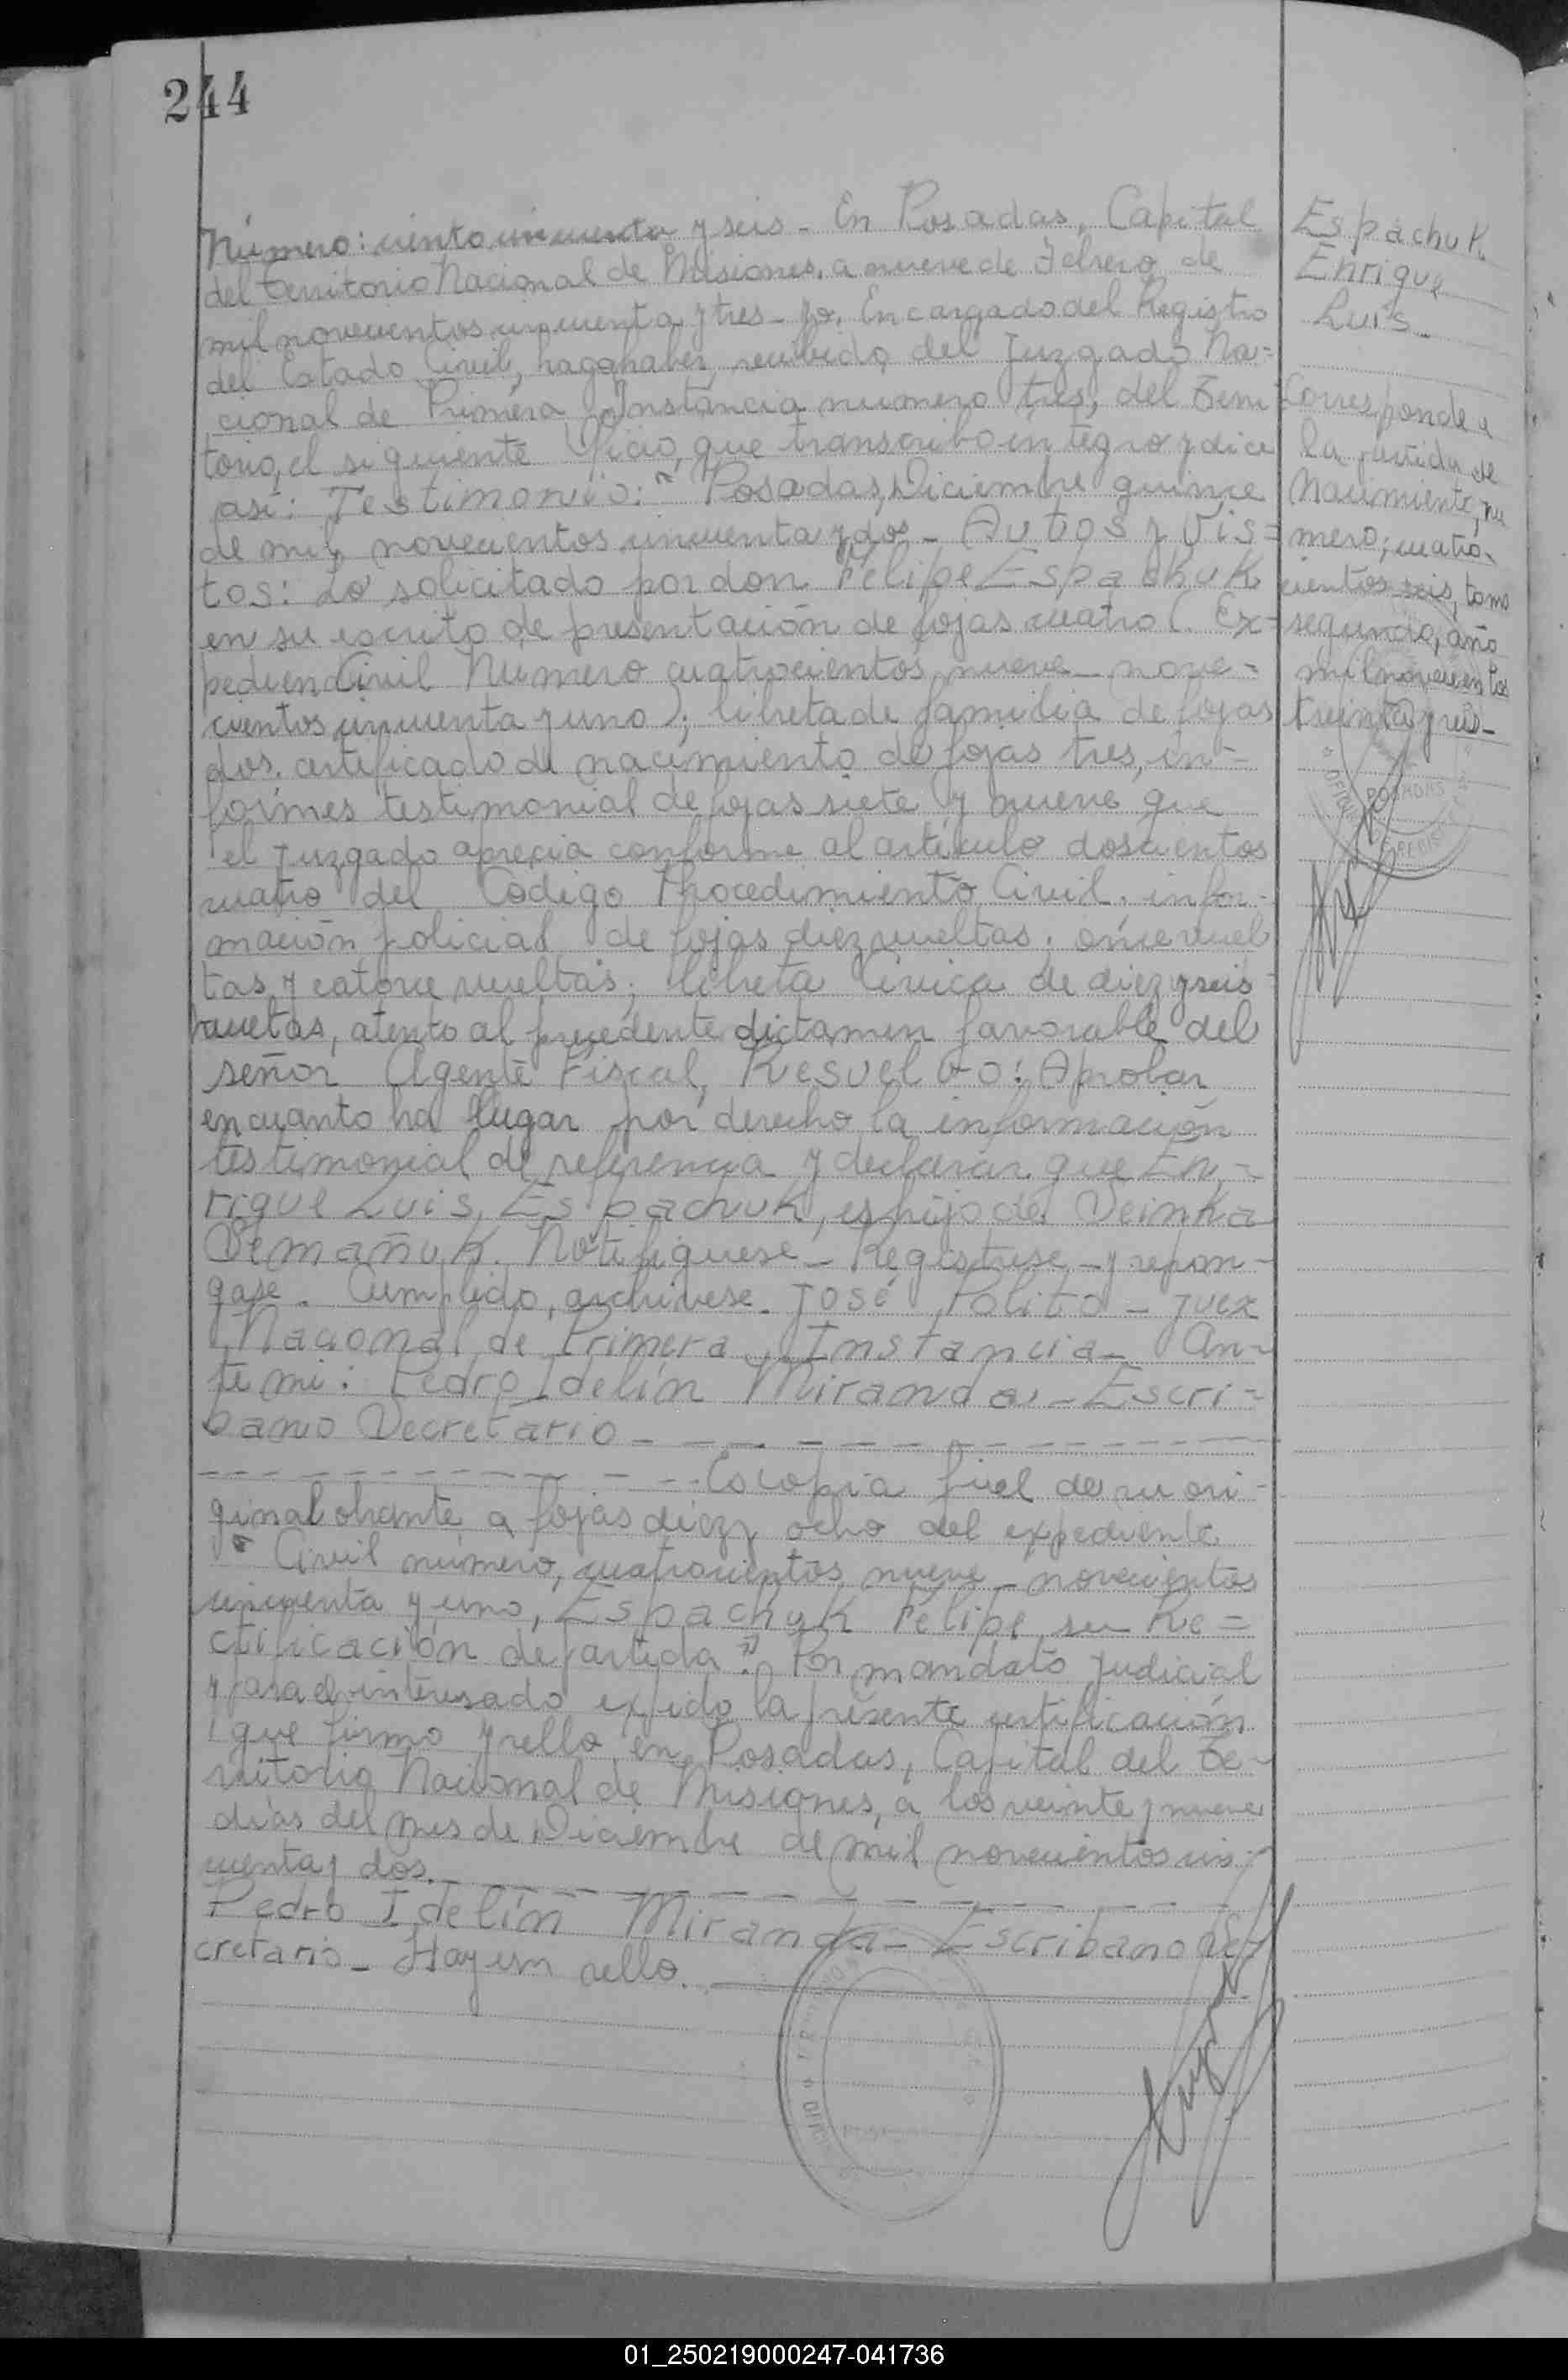 244
Número: ciento cincuenta y seis - En Posadas, Capital
del Territorio Nacional de Misiones, a nueve de Febrero de
mil novecientos cincuenta y tres - yo, Encargado del Registro
del Estado Civil, hago haber recibido del Juzgado Na=
cional de Primera Instancia numero tres, del Terri
torio, el siguiente Oficio, que transcribo integro y dice
asi: Testimonio: " Posadas, Diciembre quince
de mil novecientos cincuenta y dos - Autos y Vis=
tos: Lo solicitado por don Felipe Espachuk
en su escrito de presentación de fojas cuatro (Ex=
pedien Civil Numero cuatrocientos nueve - nove=
cientos cincuenta y uno); libreta de familia de fojas
dos, certificado de nacimiento de fojas tres, in=
formes testimonial de fojas siete y nueve que
el Juzgado aprecia conforme al artículo doscientos
cuatro del Codigo Procedimiento Civil, infor-
mación policial de fojas diez vueltas, once vuel
tas y catorce vueltas; libreta Civica de diez y seis
vueltas, atento al precedente dictamen favorable del
señor Agente Fiscal, Resuelvo: Aprobar
en cuanto ha lugar por derecho la información
testimonial de referencia y declarar que En=
rique Luis, Espachuk, es hijo de Seinka
Semañuk. Notifiquese - Registrese - y repon-
gase. Cumplido, archivese. José Polito - Juez
Nacional de Primera Instancia - An-
te mi: Pedro Idelín Miranda - Escri=
bano Secretario -
Es copia fiel de su ori-
ginal obrante a fojas diez y ocho del expediente
Civil número, cuatrocientos nueve - novecientos
cincuenta y uno, Espachuk Felipe su Re=
ctificación de partida". Por mandato judicial
y para el interesado expido la presente certificación
que firmo y sello en Posadas, Capital del Te-
rritorio Nacional de Misiones, a los veinte y nueve
días del mes de Diciembre de mil novecientos cin-
cuenta y dos.
Pedro Idelín Miranda - Escribano Se-
cretario - Hay un sello.
Espachuk
Enrique
Luis
Corresponde a
la partida de
Nacimiento, nu
mero; cuatro-
cientos seis, tomo
segundo, año
mil novecientos
treinta y seis -
POSADAS
01_250219000247-041736